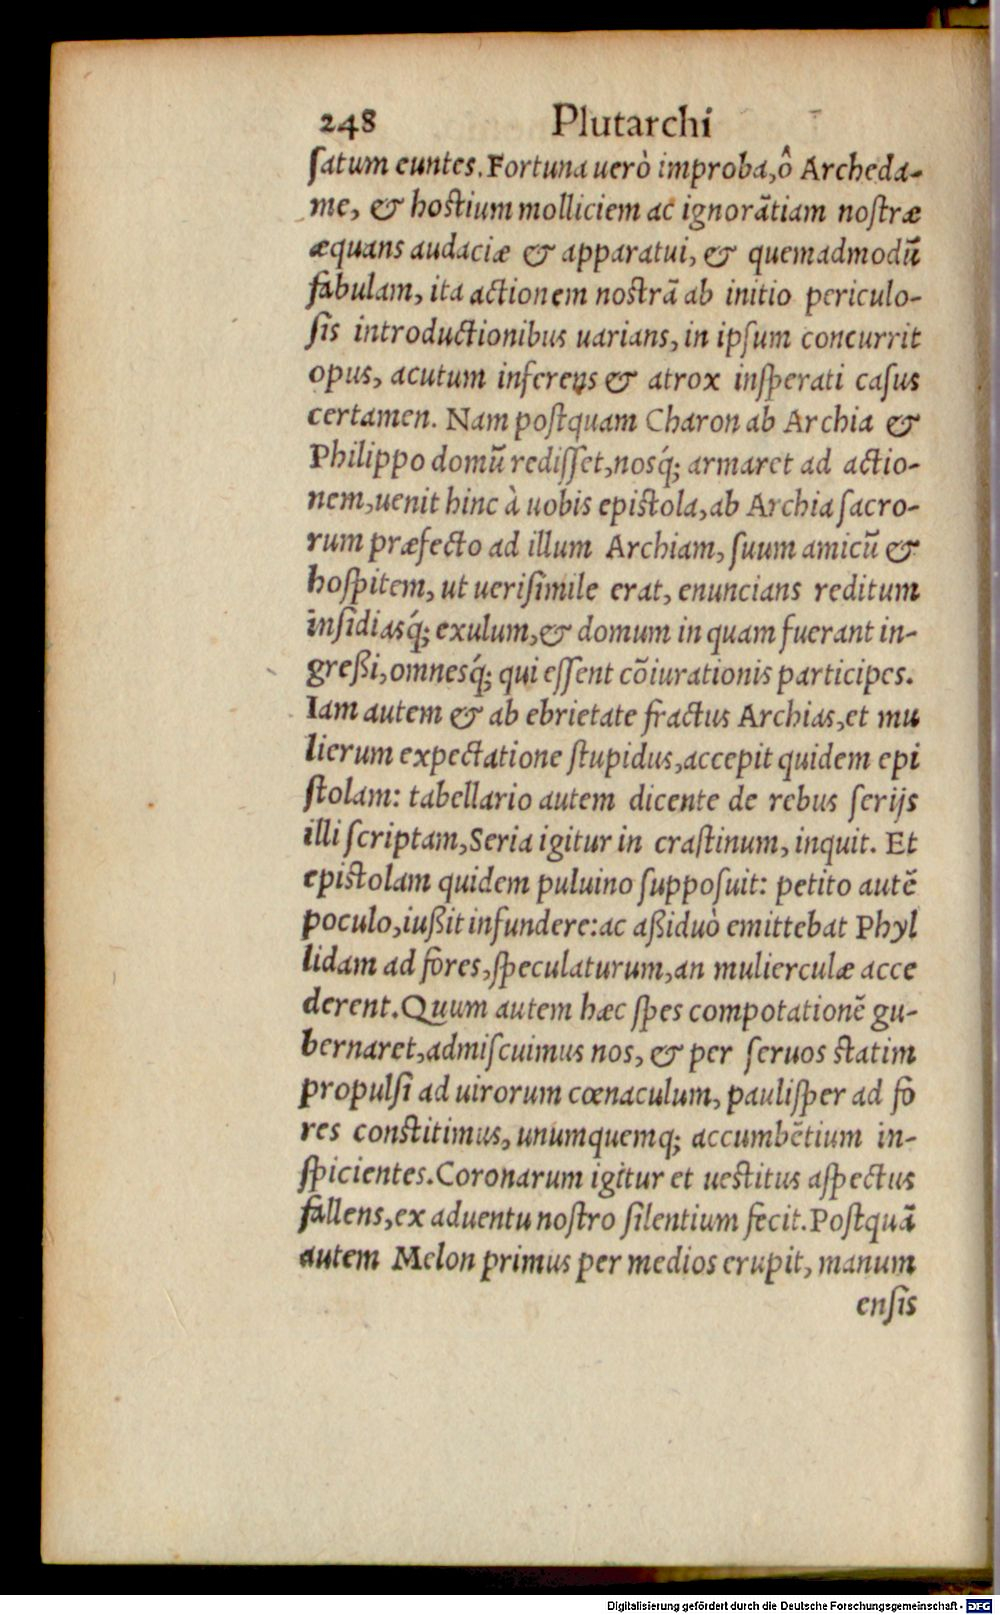 248 Plutarchi
ſatum euntes. Fortuna uerò improba, ô Archeda-
me, & hostium molliciem ac ignorãtiam noſtræ
æquans audaciæ & apparatui, & quemadmodũ
fabulam, ita actionem nostrã ab initio periculo-
ſis introductionibus uarians, in ipſum concurrit
opus, acutum inferens & atrox inſperati caſus
certamen. Nam poſtquam Charon ab Archia &
Philippo domũ rediſſet, nosq́; armaret ad actio-
nem, uenit hinc à uobis epistola, ab Archia ſacro-
rum præfecto ad illum Archiam, ſuum amicũ &
hoſpitem, ut ueriſimile erat, enuncians reditum
inſidiasq́; exulum, & domum in quam fuerant in-
greßi, omnesq́; qui eſſent cõiurationis participes.
Iam autem & ab ebrietate fractus Archias, et mu
lierum expectatione ſtupidus, accepit quidem epi
ſtolam: tabellario autem dicente de rebus ſerijs
illi ſcriptam, Seria igitur in craſtinum, inquit. Et
epistolam quidem puluino ſuppoſuit: petito autẽ
poculo, iußit infundere: ac aßiduò emittebat Phyl
lidam ad fores, ſpeculaturum, an mulierculæ acce
derent. Quum autem hæc ſpes compotationẽ gu-
bernaret, admiſcuimus nos, & per ſeruos statim
propulſi ad uirorum cœnaculum, pauliſper ad fo
res constitimus, unumquemq; accumbẽtium in-
ſpicientes. Coronarum igitur et uestitus aſpectus
fallens, ex aduentu noſtro ſilentium fecit. Poſtquã
autem Melon primus per medios erupit, manum
enſis
Digitalisierung gefördert durch die Deutsche Forschungsgemeinschaft - DFG